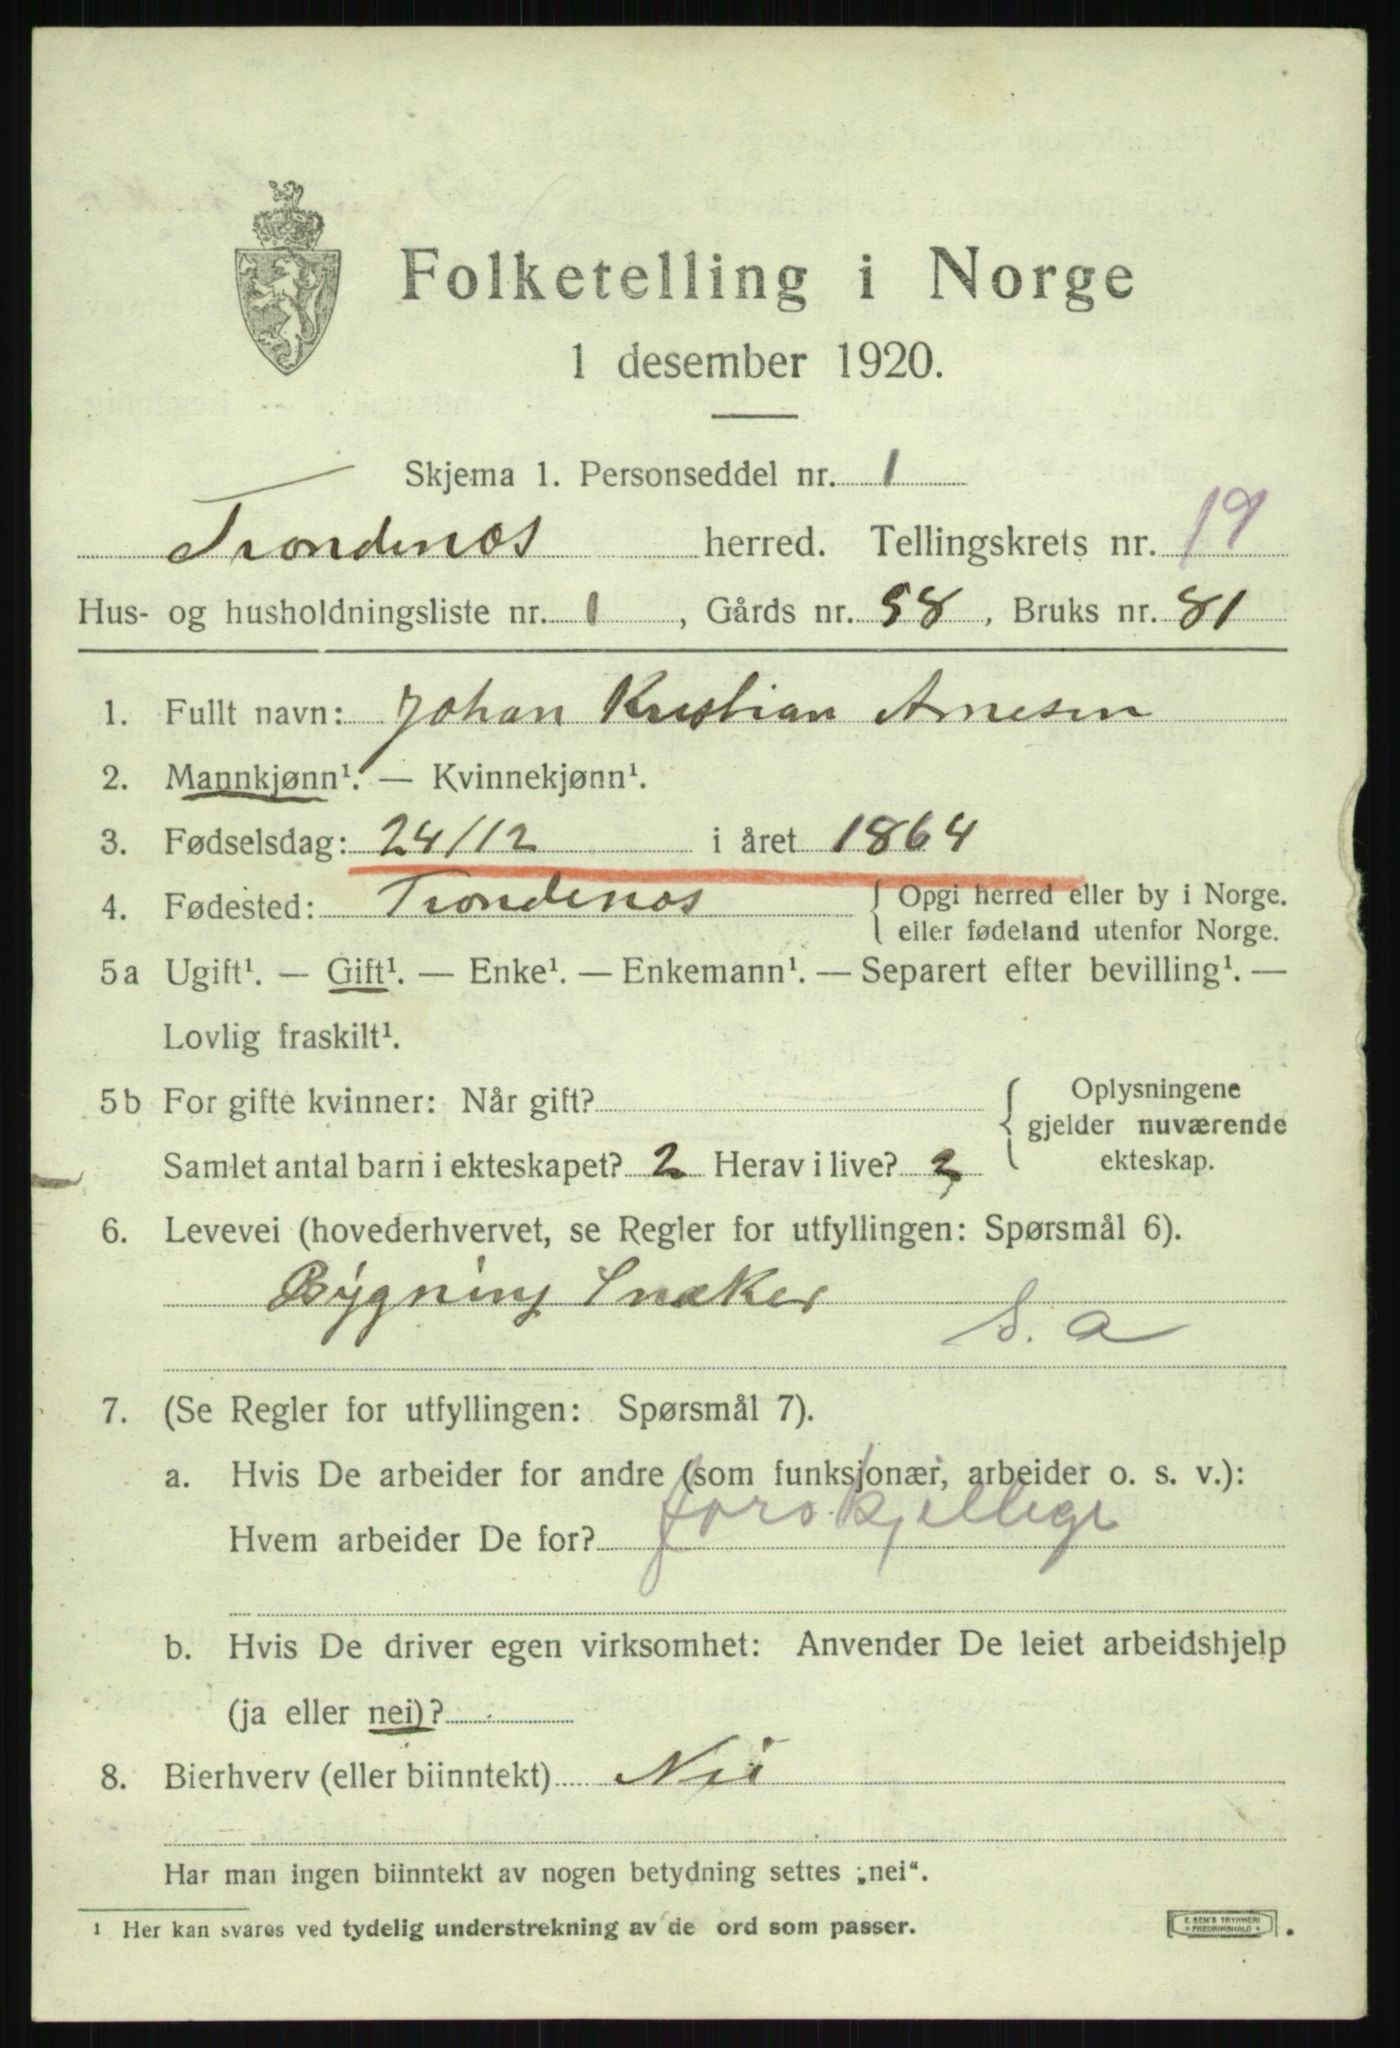 Folketelling i Norge
1 desember 1920.
Skjema 1. Personseddel nr. 1
Trondenæs herred. Tellingskrets nr. 19
Hus- og husholdningsliste nr. 1, Gårds nr. 58, Bruks nr. 81
1. Fullt navn: Johan Kristian Arnesen
2. Mannkjønn¹. — Kvinnekjønn¹.
3. Fødselsdag: 24/12 i året 1864
4. Fødested: Trondenæs { Opgi herred eller by i Norge.
eller fødeland utenfor Norge.
5a Ugift¹. — Gift¹. — Enke¹. — Enkemann¹. — Separert efter bevilling¹. —
Lovlig fraskilt¹.
5b For gifte kvinner: Når gift? { Oplysningene
gjelder nuværende
Samlet antal barn i ekteskapet? 2 Herav i live? 2 ekteskap.
6. Levevei (hovederhvervet, se Regler for utfyllingen: Spørsmål 6).
Bygning Snæker
S. a
7. (Se Regler for utfyllingen: Spørsmål 7).
a. Hvis De arbeider for andre (som funksjonær, arbeider o. s. v.):
Hvem arbeider De for? forskjellige
b. Hvis De driver egen virksomhet: Anvender De leiet arbeidshjelp
(ja eller nei)?
8. Bierhverv (eller biinntekt) Nei
Har man ingen biinntekt av nogen betydning settes „nei“.
¹ Her kan svares ved tydelig understrekning av de ord som passer.
E. SEM'S TRYKKERI
* FREDRIKSHALD *